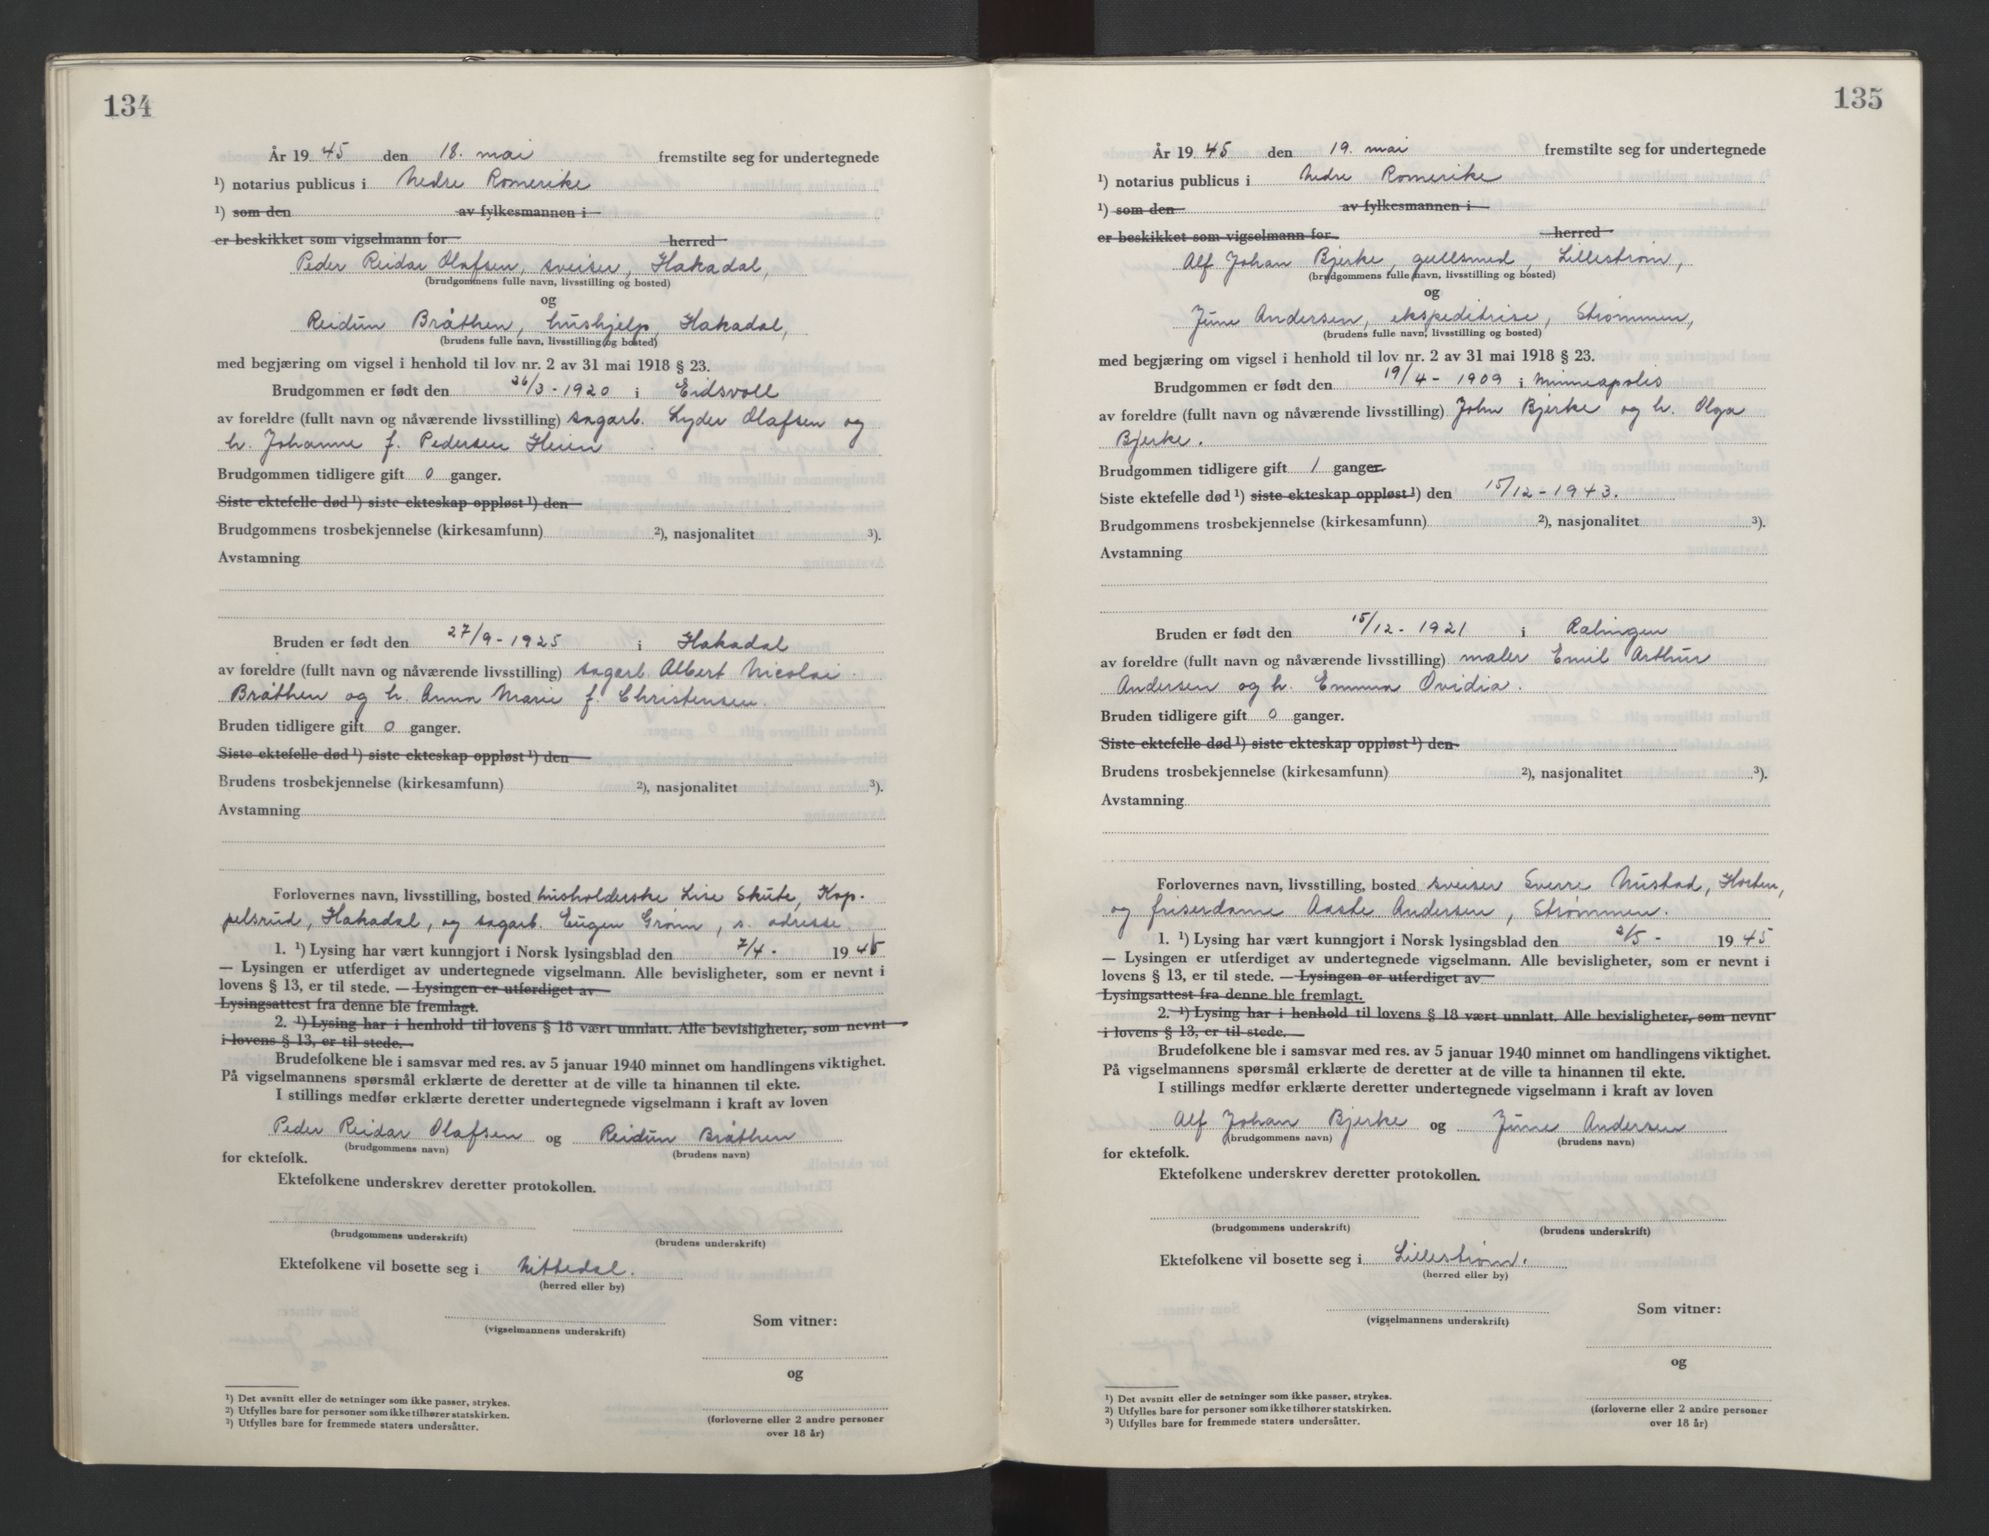 134
År 19 45 den 18. mai fremstilte seg for undertegnede
¹) notarius publicus i Nedre Romerike
¹) som den av fylkesmannen i
er beskikket som vigselmann for herred
Peder Reidar Olafsen, sveiser, Hakadal,
(brudgommens fulle navn, livsstilling og bosted)
og
Reidun Bråthen, hushjelp, Hakadal,
(brudens fulle navn, livsstilling og bosted)
med begjæring om vigsel i henhold til lov nr. 2 av 31 mai 1918 § 23.
Brudgommen er født den 26/3 - 1920 i Eidsvoll
av foreldre (fullt navn og nåværende livsstilling) sagarb. Lyder Olafsen og
h. Johanne f. Pedersen Heim
Brudgommen tidligere gift 0 ganger.
Siste ektefelle død ¹) siste ekteskap oppløst ¹) den
Brudgommens trosbekjennelse (kirkesamfunn) ²), nasjonalitet ³).
Avstamning
Bruden er født den 27/9 - 1925 i Hakadal
av foreldre (fullt navn og nåværende livsstilling) sagarb. Albert Nicolai
Bråthen og h. Anna Marie f. Christensen.
Bruden tidligere gift 0 ganger.
Siste ektefelle død ¹) siste ekteskap oppløst ¹) den
Brudens trosbekjennelse (kirkesamfunn) ²), nasjonalitet ³).
Avstamning
Forlovernes navn, livsstilling, bosted husholderske Lise Skute, Kop-
pelsrud, Hakadal, og sagarb. Eugen Grønn, s. adresse.
1. ¹) Lysing har vært kunngjort i Norsk lysingsblad den 7/4 - 19 45
— Lysingen er utferdiget av undertegnede vigselmann. Alle bevisligheter, som er nevnt i
lovens § 13, er til stede. — Lysingen er utferdiget av
Lysingsattest fra denne ble fremlagt.
2. ¹) Lysing har i henhold til lovens § 18 vært unnlatt. Alle bevisligheter, som nevnt
i lovens § 13, er til stede.
Brudefolkene ble i samsvar med res. av 5 januar 1940 minnet om handlingens viktighet.
På vigselmannens spørsmål erklærte de deretter at de ville ta hinannen til ekte.
I stillings medfør erklærte deretter undertegnede vigselmann i kraft av loven
Peder Reidar Olafsen og Reidun Bråthen
(brudgommens navn) (brudens navn)
for ektefolk.
Ektefolkene underskrev deretter protokollen.
(brudgommens underskrift) (brudens underskrift)
Ektefolkene vil bosette seg i Nittedal.
(herred eller by)
Som vitner:
(vigselmannens underskrift)
og
¹) Det avsnitt eller de setninger som ikke passer, strykes.
²) Utfylles bare for personer som ikke tilhører statskirken.
³) Utfylles bare for fremmede staters undersåtter.
(forloverne eller 2 andre personer
over 18 år)
135
År 19 45 den 19. mai fremstilte seg for undertegnede
¹) notarius publicus i Nedre Romerike
¹) som den av fylkesmannen i
er beskikket som vigselmann for herred
Alf Johan Bjerke, gullsmed, Lillestrøm,
(brudgommens fulle navn, livsstilling og bosted)
og
June Andersen, ekspeditrise, Strømmen,
(brudens fulle navn, livsstilling og bosted)
med begjæring om vigsel i henhold til lov nr. 2 av 31 mai 1918 § 23.
Brudgommen er født den 19/4 - 1909 i Minneapolis
av foreldre (fullt navn og nåværende livsstilling) John Bjerke og h. Olga
Bjerke.
Brudgommen tidligere gift 1 ganger.
Siste ektefelle død ¹) siste ekteskap oppløst ¹) den 15/12 - 1943.
Brudgommens trosbekjennelse (kirkesamfunn) ²), nasjonalitet ³).
Avstamning
Bruden er født den 15/12 - 1921 i Rælingen
av foreldre (fullt navn og nåværende livsstilling) maler Emil Arthur
Andersen og h. Emma Ovidia.
Bruden tidligere gift 0 ganger.
Siste ektefelle død ¹) siste ekteskap oppløst ¹) den
Brudens trosbekjennelse (kirkesamfunn) ²), nasjonalitet ³).
Avstamning
Forlovernes navn, livsstilling, bosted sveiser Sverre Nustad, Horten,
og friserdame Aaste Andersen, Strømmen.
1. ¹) Lysing har vært kunngjort i Norsk lysingsblad den 2/5 - 19 45
— Lysingen er utferdiget av undertegnede vigselmann. Alle bevisligheter, som er nevnt i
lovens § 13, er til stede. — Lysingen er utferdiget av
Lysingsattest fra denne ble fremlagt.
2. ¹) Lysing har i henhold til lovens § 18 vært unnlatt. Alle bevisligheter, som nevnt
i lovens § 13, er til stede.
Brudefolkene ble i samsvar med res. av 5 januar 1940 minnet om handlingens viktighet.
På vigselmannens spørsmål erklærte de deretter at de ville ta hinannen til ekte.
I stillings medfør erklærte deretter undertegnede vigselmann i kraft av loven
Alf Johan Bjerke og June Andersen
(brudgommens navn) (brudens navn)
for ektefolk.
Ektefolkene underskrev deretter protokollen.
(brudgommens underskrift) (brudens underskrift)
Ektefolkene vil bosette seg i Lillestrøm.
(herred eller by)
Som vitner:
(vigselmannens underskrift)
og
¹) Det avsnitt eller de setninger som ikke passer, strykes.
²) Utfylles bare for personer som ikke tilhører statskirken.
³) Utfylles bare for fremmede staters undersåtter.
(forloverne eller 2 andre personer
over 18 år)